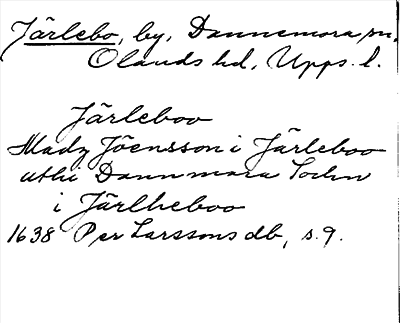 Järlebo, by, Dannemora sn,
Olands hd, Upps. l.
Järleboo
Madz Jöensson i Järleboo
uthi Dannmara Sochn
i Järlheboo
1638 Per Larssons db, s. 9.